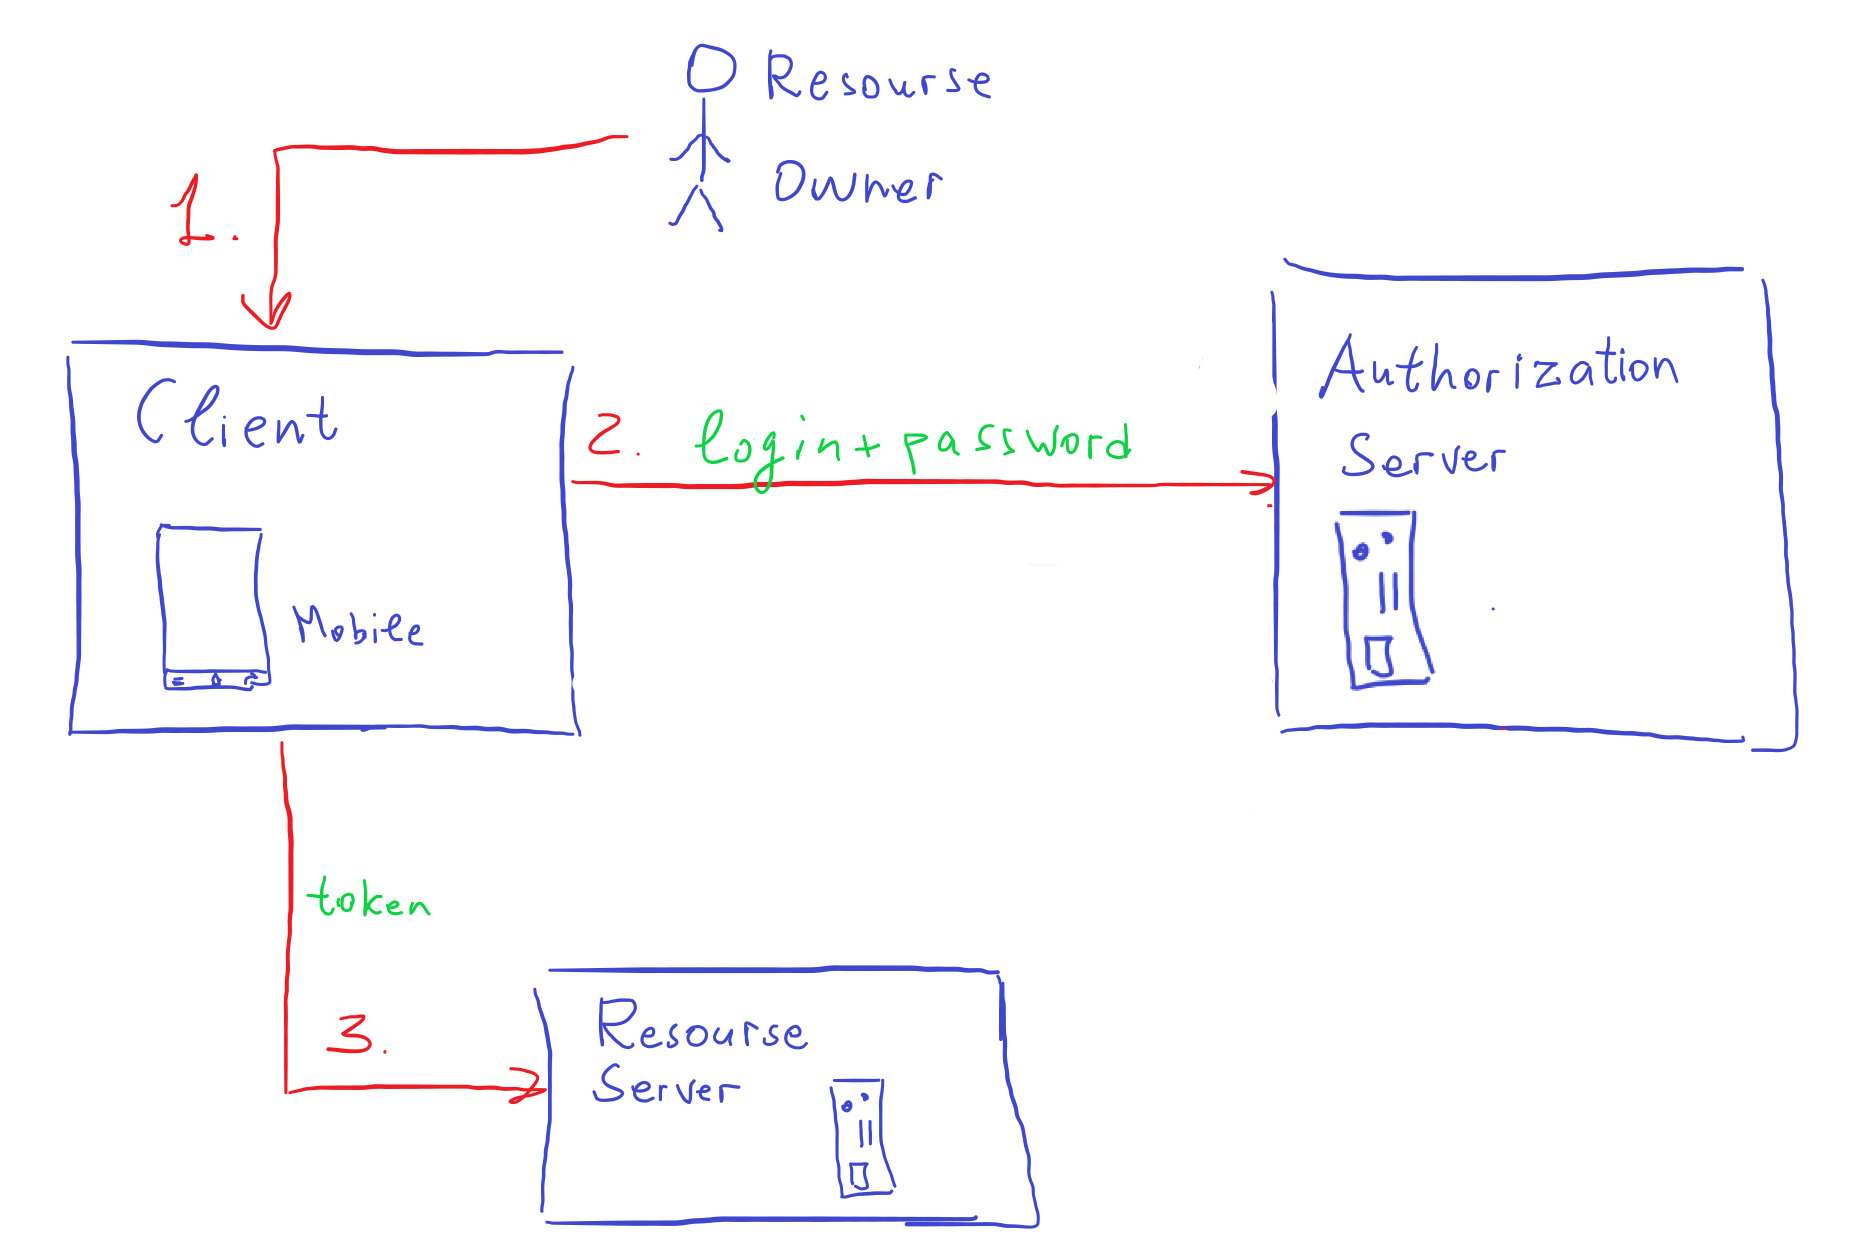 Resourse
Owner
1.
Client
Mobile
2. login + password
Authorization
Server
token
3.
Resourse
Server